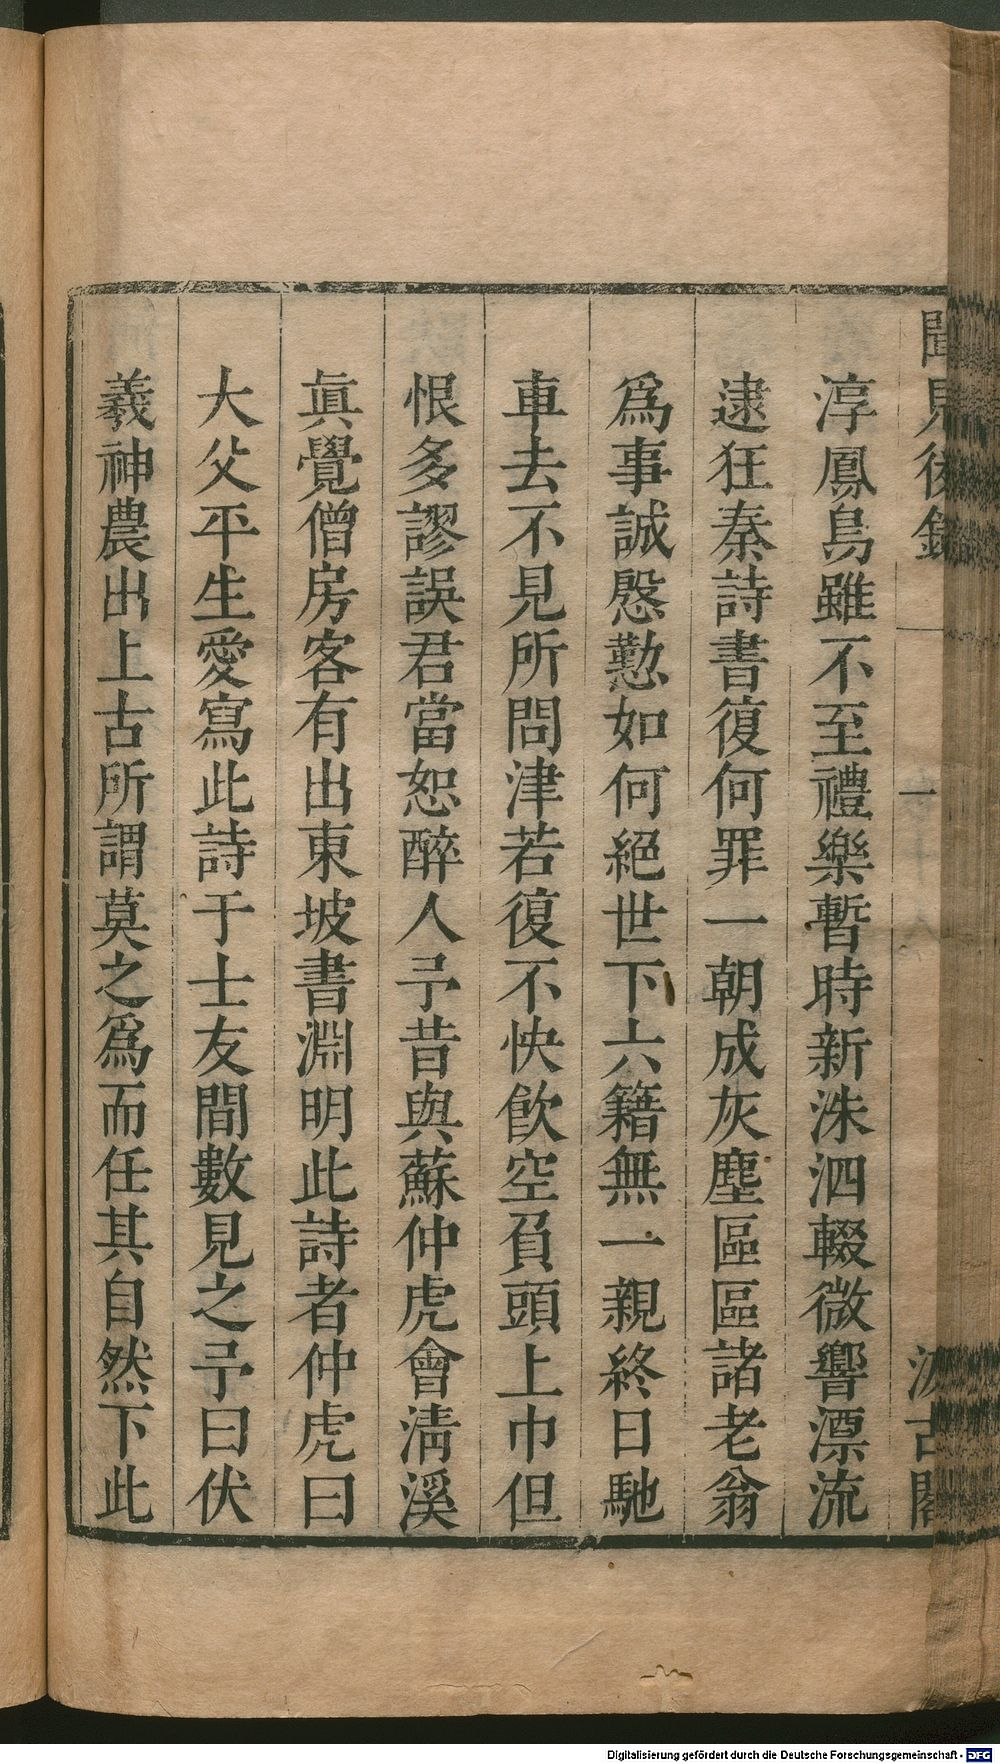 聞見後錄
一
汲古閣
淳鳳鳥雖不至禮樂暫時新洙泗輟微響漂流
逮狂秦詩書復何罪一朝成灰塵區區諸老翁
爲事誠慇懃如何絕世下六籍無一親終日馳
車去不見所問津若復不快飮空負頭上巾但
恨多謬誤君當恕醉人予昔與蘇仲虎會淸溪
眞覺僧房客有出東坡書淵明此詩者仲虎曰
大父平生愛寫此詩于士友間數見之予曰伏
羲神農出上古所謂莫之爲而任其自然下此
Digitalisierung gefördert durch die Deutsche Forschungsgemeinschaft - DFG